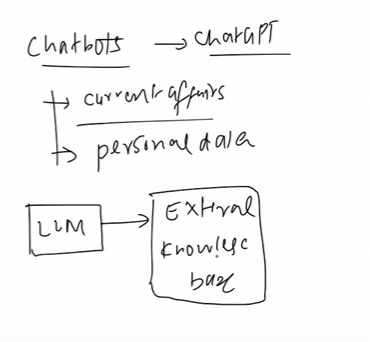 Chatbots → ChatGPT
current affairs
personal data
LLM
External
knowledge
base